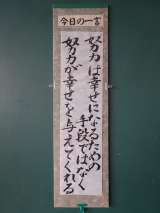 今日の一言
努力は幸せになるための
手段ではなく
努力が幸せを与えてくれる